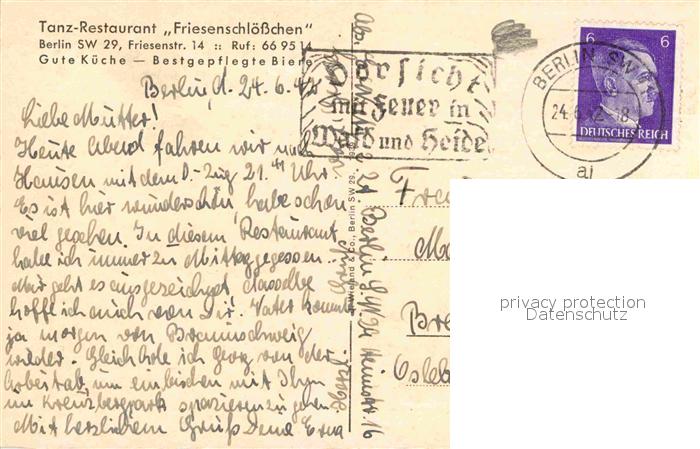 Tanz-Restaurant „Friesenschlößchen"
Berlin SW 29, Friesenstr. 14 :: Ruf: 66 95 14
Gute Küche — Bestgepflegte Biere
Berlin, d. 24.6.42
Liebe Mutter!
Heute Abend fahren wir nach
Hausen mit dem D-Zug 21.41 Uhr.
Es ist hier wunderschön, habe schon
viel gesehen. In diesem Restaurant
habe ich immer zu Mittag gegessen.
Mir geht es ausgezeichnet, dasselbe
hoffe ich auch von Dir. Vater kommt
ja morgen von Braunschweig
wieder. Gleich hole ich Georg von der
um ein bischen mit Ihm
im Kreuzbergpark spazieren zu gehen.
Mit herzlichem Gruß Deine Erna
Vorsicht
mit Feuer in
Wald und Heide
BERLIN SW
24.6.42.18
a
6 6
DEUTSCHES REICH
Wieland & Co., Berlin SW 29
Abs.
Berlin SW. 29 Heimstr. 16
Georg
privacy protection
Datenschutz